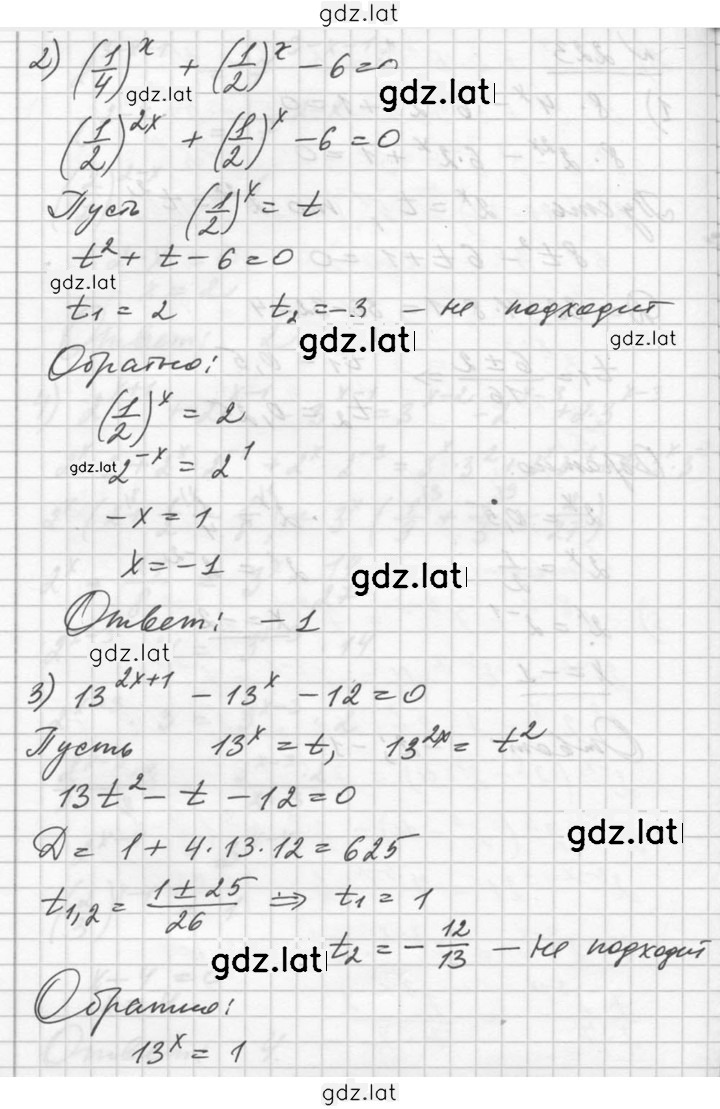 gdz.lat
2) (1/4)^x + (1/2)^x − 6 = 0
gdz.lat gdz.lat
(1/2)^2x + (1/2)^x − 6 = 0
Пусть (1/2)^x = t
t² + t − 6 = 0
gdz.lat
t₁ = 2 t₂ = −3 − не подходит
gdz.lat gdz.lat
Обратно:
(1/2)^x = 2
gdz.lat 2^−x = 2^1
−x = 1
x = −1
gdz.lat
Ответ: −1
gdz.lat
3) 13^2x+1 − 13^x − 12 = 0
Пусть 13^x = t, 13^2x = t²
13t² − t − 12 = 0
gdz.lat
D = 1 + 4·13·12 = 625
t₁,₂ = (1 ± 25)/26 ⇒ t₁ = 1
gdz.lat t₂ = −12/13 − не подходит
Обратно:
13^x = 1
gdz.lat